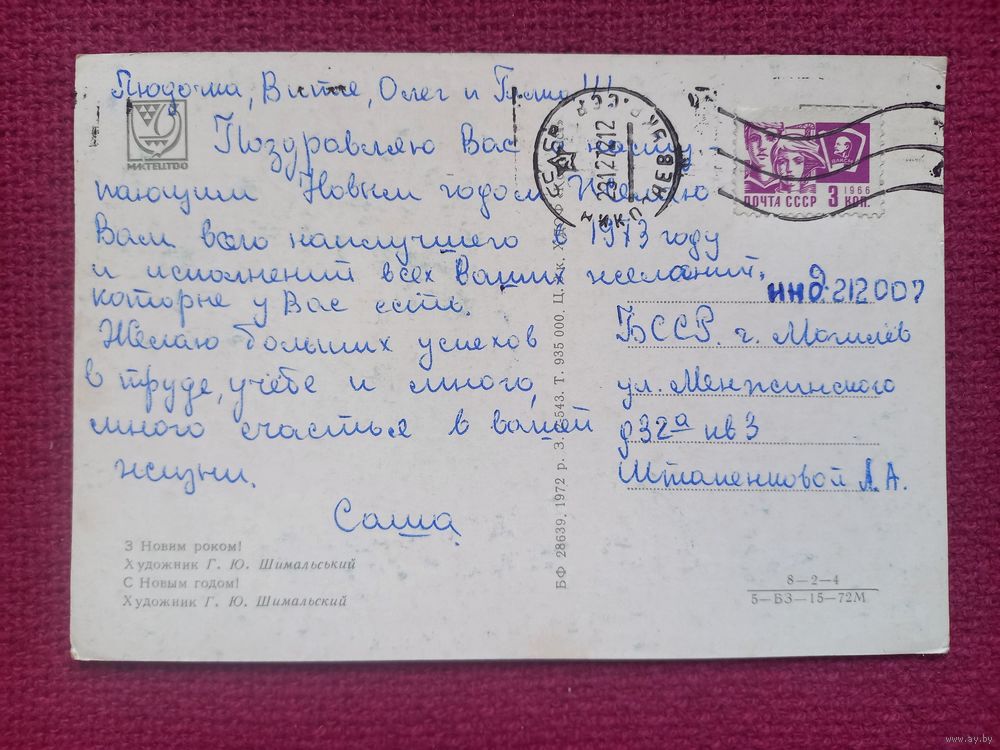 Людочка, Витя, Олег и !!!
Поздравляю Вас с насту-
пающим Новым годом. Желаю
Вам всего наилучшего в 1973 году
и исполнений всех Ваших желаний,
которые у Вас есть.
Желаю больших успехов
в труде, учёбе и много,
много счастья в вашей
жизни.
Саша
МИСТЕЦТВО
З Новим роком!
Художник Г. Ю. Шимальський
С Новым годом!
Художник Г. Ю. Шимальский
БФ 28639. 1972 р. Т. 935 000. Ц.
КИЕВ
221272
12
ПОЧТА СССР 3 КОП.
1966
ВЛКСМ
инд. 212007
БССР. г. Могилёв
ул. Менжинского
д 32а кв 3
Штапенковой Л. А.
8—2—4
5—БЗ—15—72М
www.ay.by